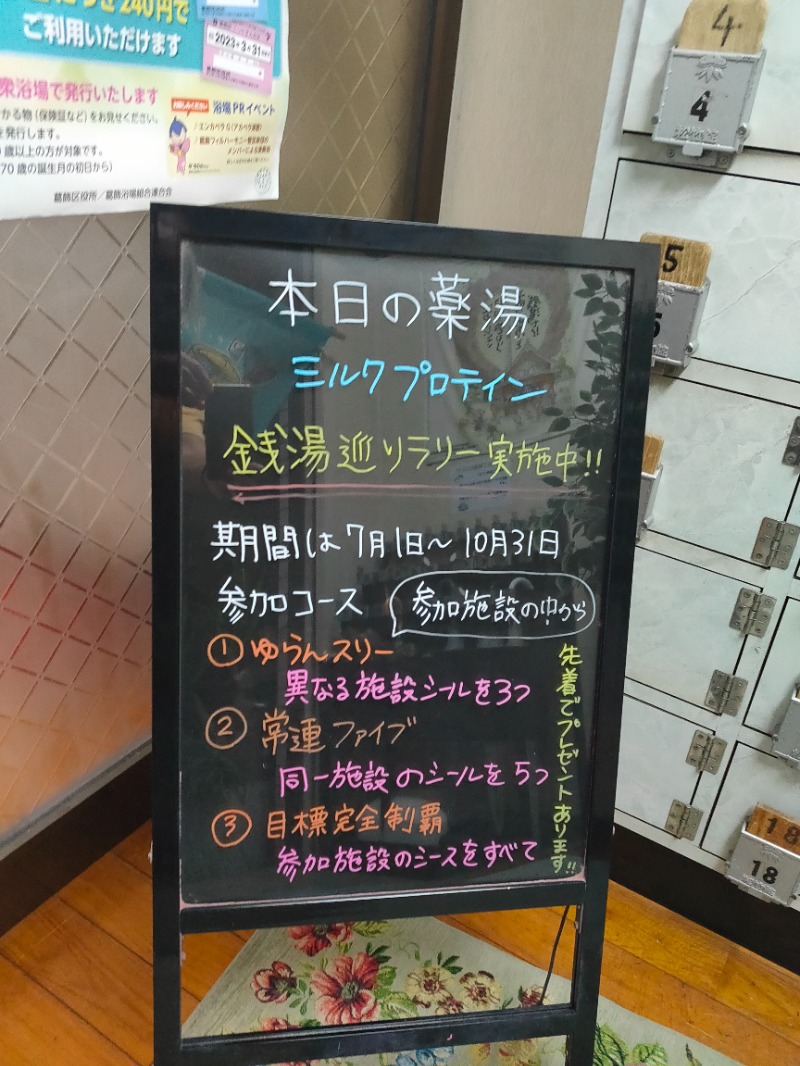 240円で
ご利用いただけます
2023年3月31
衆浴場で発行いたします
かる物（保険証など）をお見せください。
を発行します。
歳以上の方が対象です。
70歳の誕生月の初日から）
浴場PRイベント
葛飾区役所／葛飾浴場組合連合会
本日の薬湯
ミルクプロテイン
銭湯巡りラリー実施中!!
期間は7月1日～10月31日
参加コース
参加施設の中から
①ゆらんスリー
異なる施設シールを3つ
②常連ファイブ
同一施設のシールを5つ
③目標完全制覇
参加施設のシースをすべて
先着でプレゼントあります!!
4
4
5
5
18
18